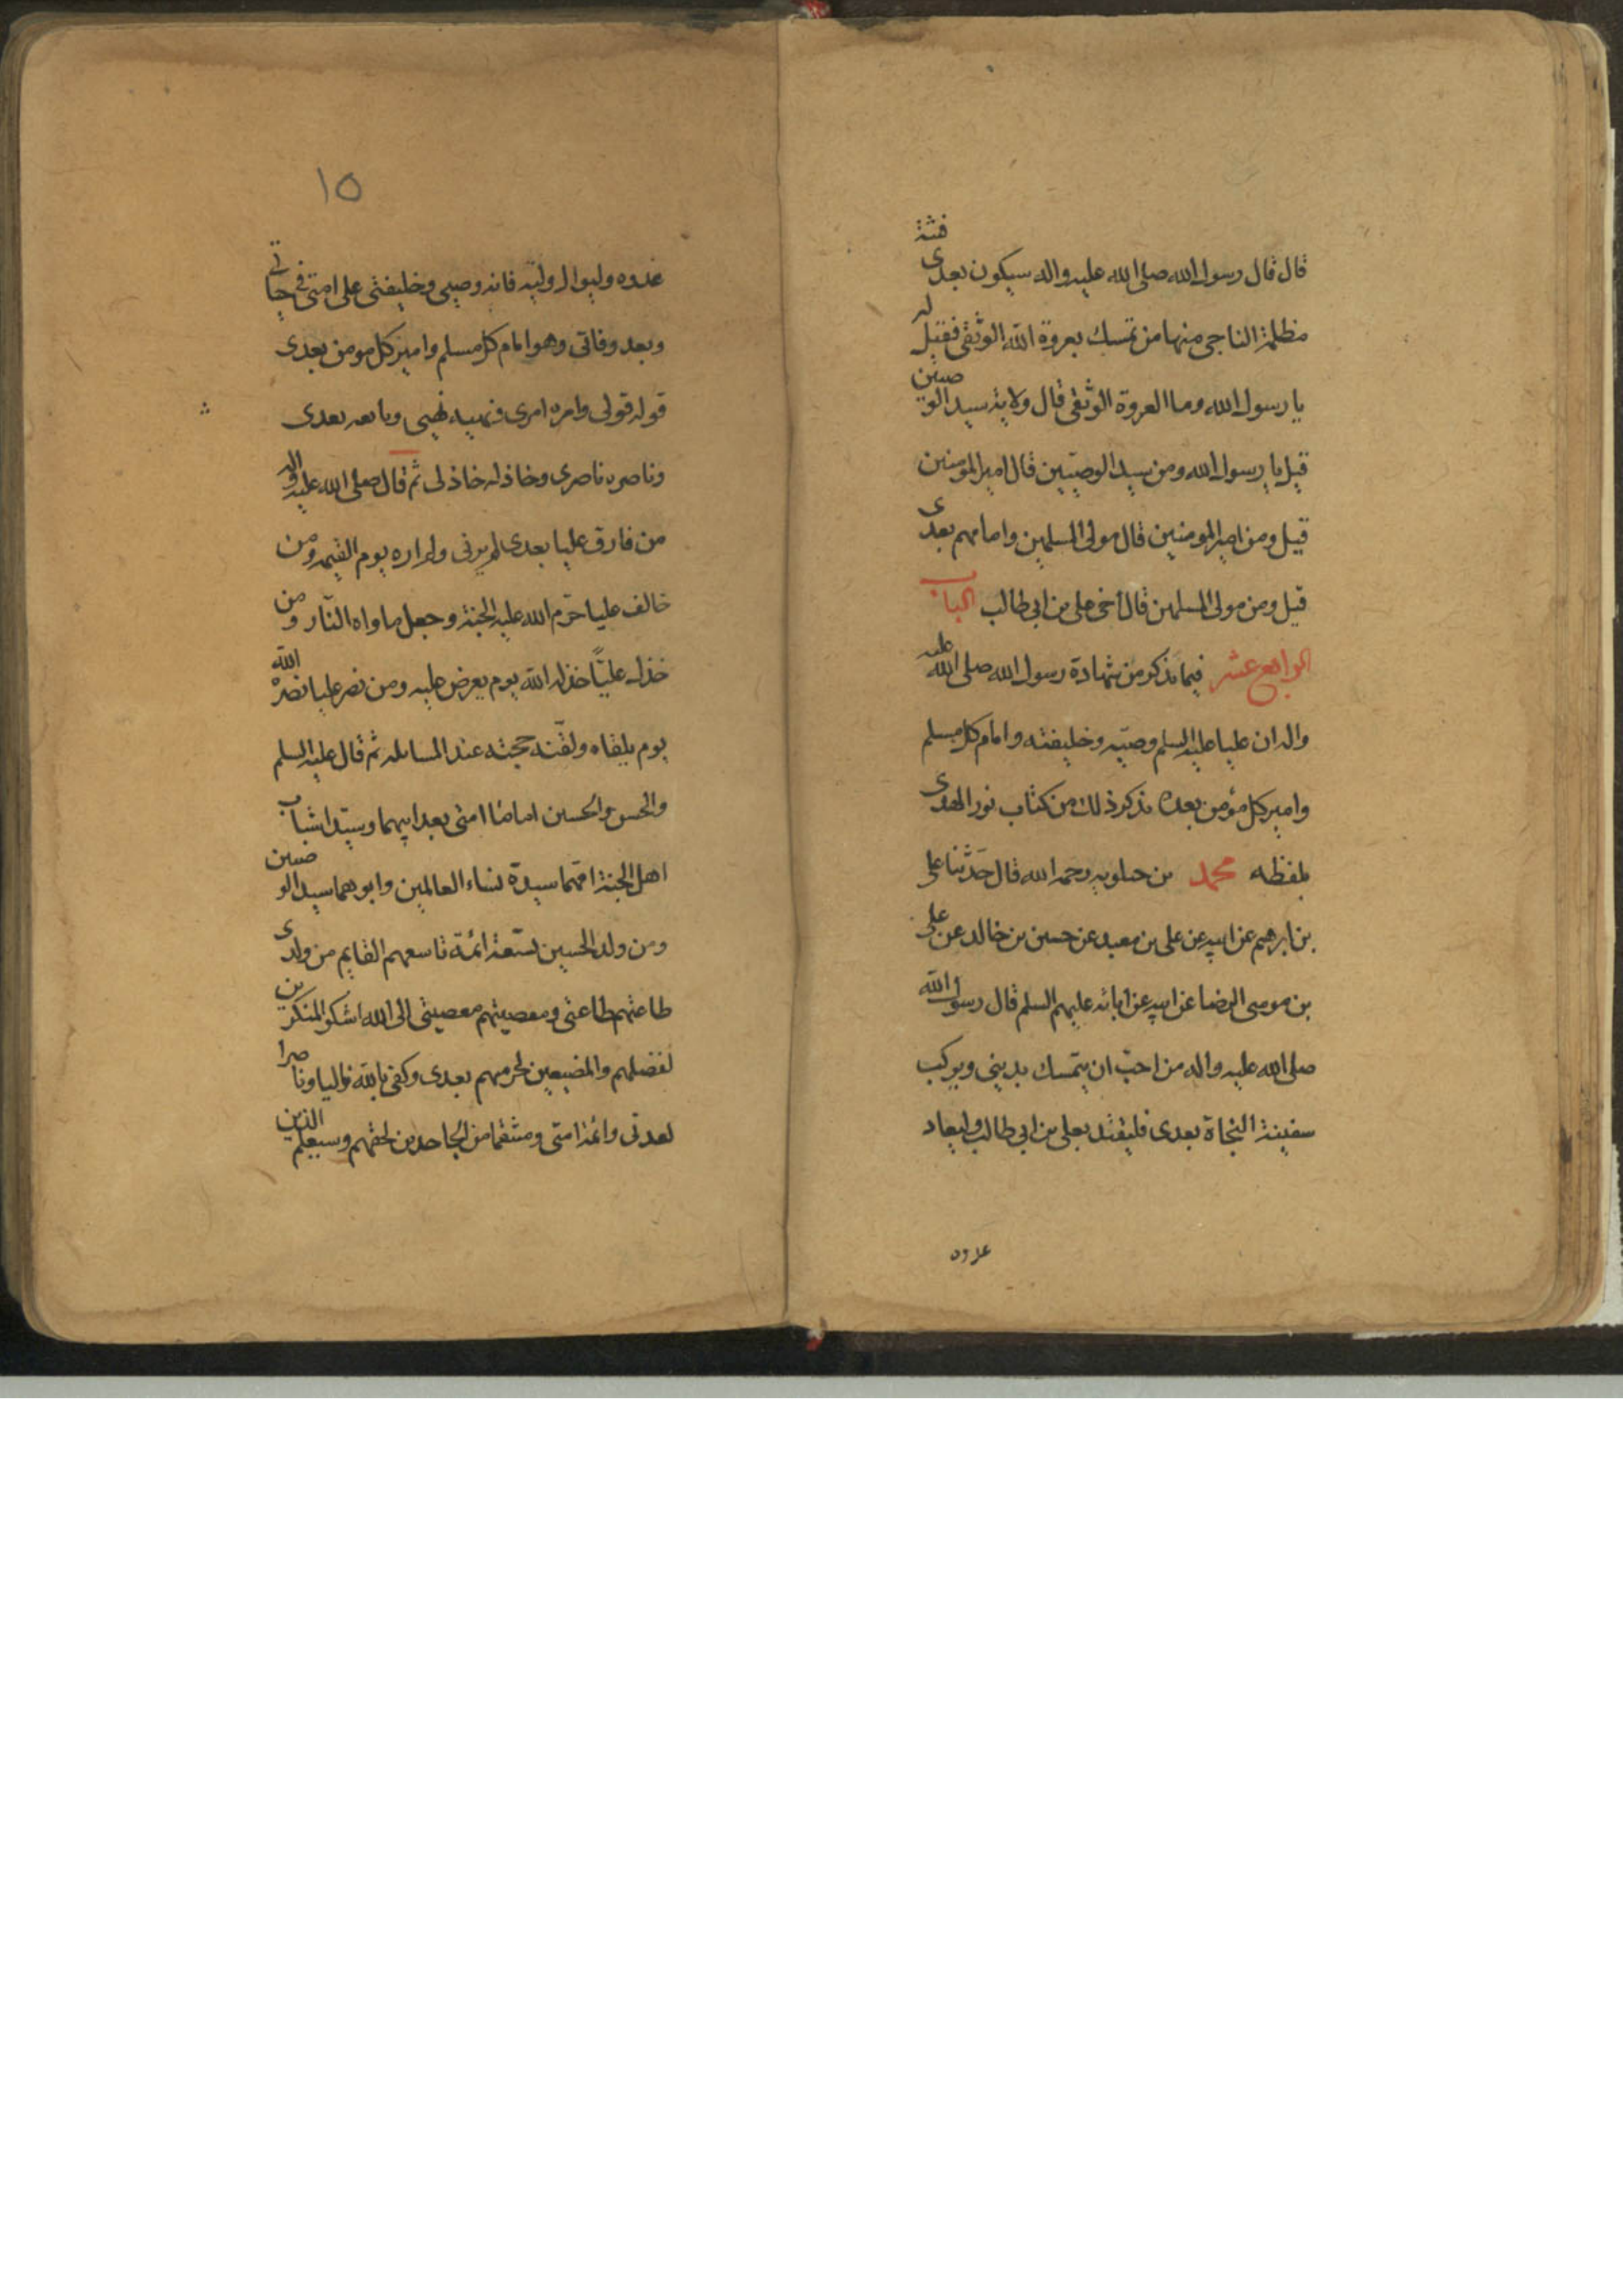 قال قال رسول الله صلى الله عليه واله سيكون بعدى فتنة
مظلمة الناجى منها من تمسك بعروة الله الوثقى فقيل له
يا رسول الله وما العروة الوثقى قال ولاية سيد الوصيين
قيل يا رسول الله ومن سيد الوصيين قال امير المومنين
قيل ومن امير المومنين قال مولى المسلمين وامامهم بعدى
قيل ومن مولى المسلمين قال اخى على بن ابى طالب الباب
الرابع عشر فيما نذكر من شهادة رسول الله صلى الله عليه
واله ان عليا عليه السلم وصيه وخليفته وامام كل مسلم
وامير كل مؤمن بعده نذكر ذلك من كتاب نور الهدى
بلفظه محمد بن حيلويه رحمه الله قال حدثنا على
بن ابرهيم عن ابيه عن على بن معبد عن حسين بن خالد عن على
بن موسى الرضا عن ابيه عن ابائه عليهم السلم قال رسول الله
صلى الله عليه واله من احب ان يتمسك بدينى ويركب
سفينة النجاة بعدى فليقتد بعلى بن ابى طالب وليعاد
عدوه
١٥
عدوه وليوال وليه فانه وصيى وخليفتى على امتى فى حياتى
وبعد وفاتى وهو امام كل مسلم وامير كل مومن بعدى
قوله قولى وامره امرى ونهييه نهيى وتابعه بعدى
وناصره ناصرى وخاذله خاذلى ثم قال صلى الله عليه واله
من فارق عليا بعدى لم يرنى ولم اراه يوم القيمه ومن
خالف عليا حرم الله عليه الجنة وجعل ماواه النار ومن
خذل عليًّا خذله الله يوم يعرض عليه ومن نصر عليا نصره الله
يوم يلقاه ولقنه حجته عند المسائله ثم قال عليه السلم
والحسن والحسين اماما امتى بعد ابيهما وسيدا شباب
اهل الجنة امهما سيدة نساء العالمين وابوهما سيد الوصيين
ومن ولد الحسين تسعة ائمة تاسعهم القايم من ولدى
طاعتهم طاعتى ومعصيتهم معصيتى الى الله اشكو المنكرين
لفضلهم والمضيعين لحرمتهم بعدى وكفى بالله واليا وناصرا
لعترتى وائمة امتى ومنتقما من الجاحدين لحقهم وسيعلم الذين